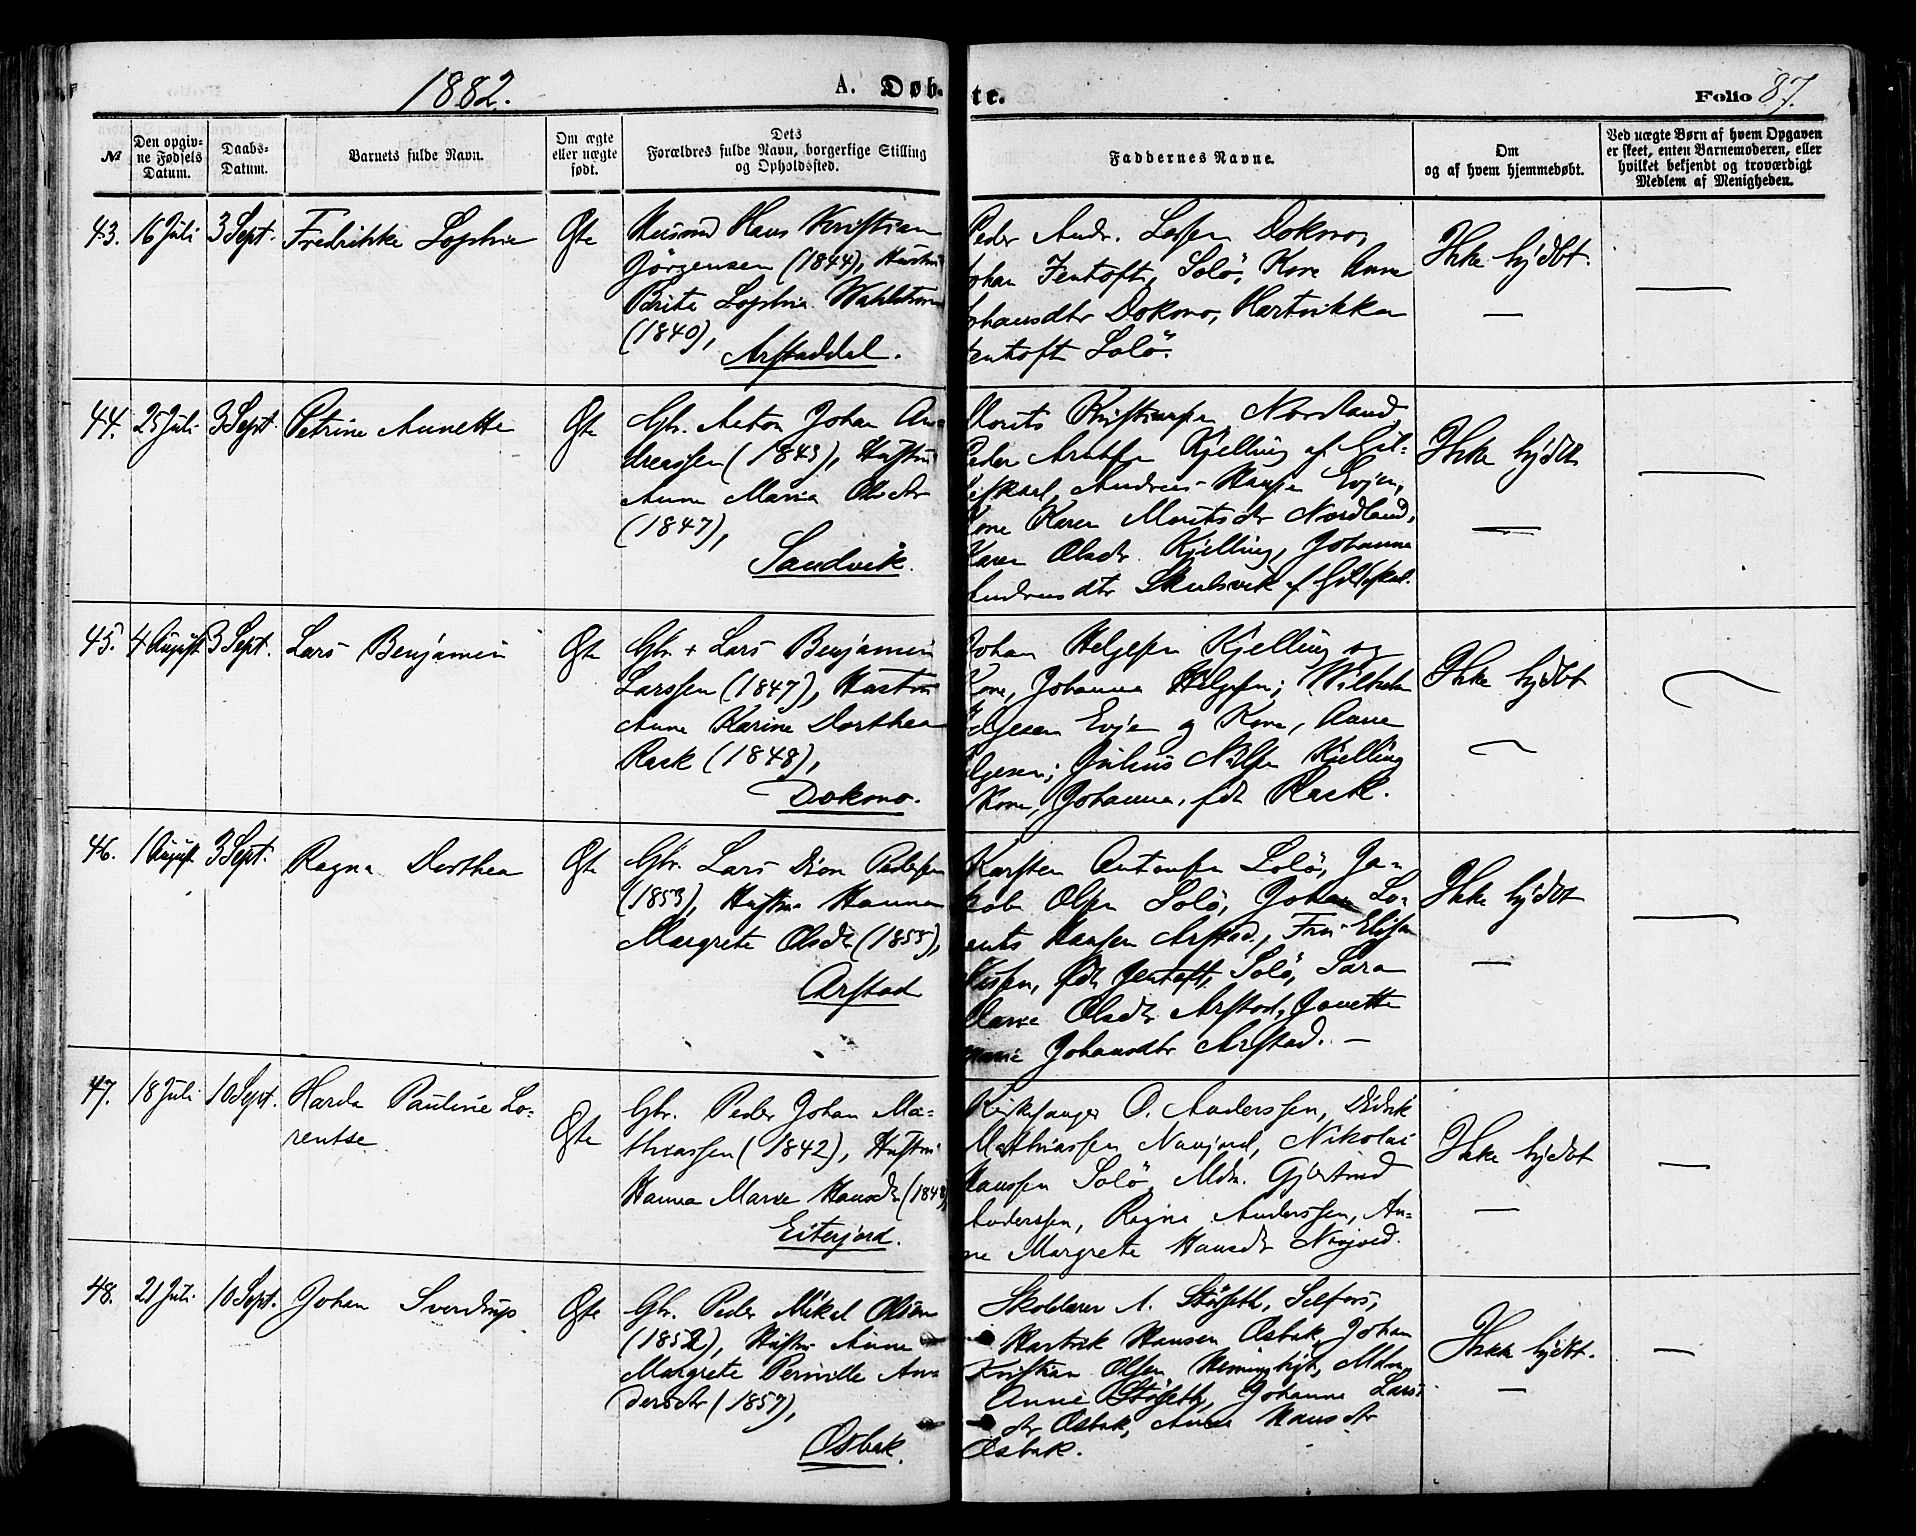 1882.
A. Døb-
te.
Folio 87.
№
Den opgiv-
ne Fødsels
Datum.
Daabs-
Datum.
Barnets fulde Navn.
Om ægte
eller uægte
født.
Dets
Forældres fulde Navn, borgerlige Stilling
og Opholdssted.
Faddernes Navne.
Om
og af hvem hjemmedøbt.
Ved uægte Børn af hvem Opgaven
er skeet, enten Barnemoderen, eller
hvilket bekjendt og troværdigt
Medlem af Menigheden.
43. 16 Juli 3 Sept. Fredrikke Sophie Ægte
Husmd Hans Kristian
Jörgensen (1844), Hustru
Brita Sophia Wahlstrøm
(1840),
Arstaddal.
Peder Andr. Larsen Dokmo,
Johan Jentoft, Solö, Kone Anne
Johansdtr Dokmo, Hartvikka
Jentoft Solö.
Ikke hjdbt.
—
44. 25 Juli 3 Sept. Petrine Annette Ægte
Gbr. Anton Johan An-
dreassen (1843), Hustru
Anne Maria Olsdtr
(1847),
Sandvik.
Morits Kristiansen Nordland,
Peder Kjelling af Gil-
deskaal, Andreas Hansen Evjen,
Kone Karen Moritsdtr Nordland,
Karen Olsdtr Kjelling, Johanna
Andreasdtr Skulsvik af Gildeskal.
Ikke hjdbt
—
45. 4 August 3 Sept. Lars Benjamin Ægte
Gbr. + Lars Benjamin
Larssen (1847), Hustru
Anne Karine Dorthea
Rask (1848),
Dokmo.
Johan Helgesen Kjelling og
Kone, Johanna Helgesen; Wilhelm
Helgesen Evjen og Kone, Anne
Helgesen; Julius Nilsen Kjelling
Kone, Johanna, fdt Rask.
Ikke hjdbt
—
46. 1 August 3 Sept. Ragna Dorthea Ægte
Gbr. Lars Dion Pedersen
(1853), Hustru Hanna
Margrete Olsdtr (1855),
Arstad
Karsten Antonsen Solö, Ja-
kob Olsen Solö, Johan Lo-
rents Hansen Arstad, Fru Elisa
fdt Jentoft, Solö, Sara
Marie Olsdtr Arstad, Janette
Marie Johansdtr Arstad. —
Ikke hjdbt
—
47. 18 Juli 10 Sept. Harda Pauline Lo-
rentse
Ægte
Gbr. Peder Johan Ma-
thiassen (1842), Hustru
Hanna Marie Hansdtr (1848),
Eiterjord.
Kirkesanger O. Anderssen, Didrik
Mathiassen Navjord, Nikolai
Hanssen Solö, Mdm. Gjertrud
Anderssen, Ragna Anderssen, An-
ne Margrete Hansdtr Navjord.
Ikke hjdbt
—
48. 21 Juli 10 Sept. Johan Sverdrup Ægte
Gbr. Peder Mikal Olsen
(1852), Hustru Anne
Margrete Pernille An-
dersdtr (1857),
Osbak.
Skolelærer A. Störseth, Selfors,
Hartvik Hansen Osbak, Johan
Kristian Olsen Hemmingligt, Mdm
Anne Störseth, Johanna Lars-
dtr Osbak, Anne Hansdtr
Osbak.
Ikke hjdbt.
—